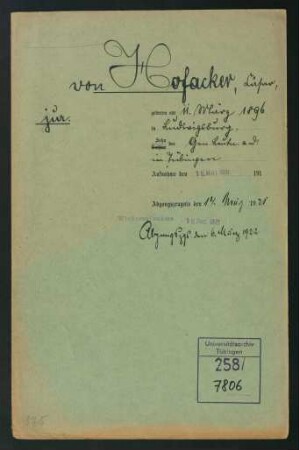 von Hofacker, Cäsar,
jur.
geboren am 11. März 1896
in Ludwigsburg.
Sohn des Gen. Leutn. a.D.
in Tübingen
Aufnahme den
191
Abgangszeugnis den 14. März 1921
Abgangszgs. den 6. März 1922
Universitätsarchiv
Tübingen
258/
7806